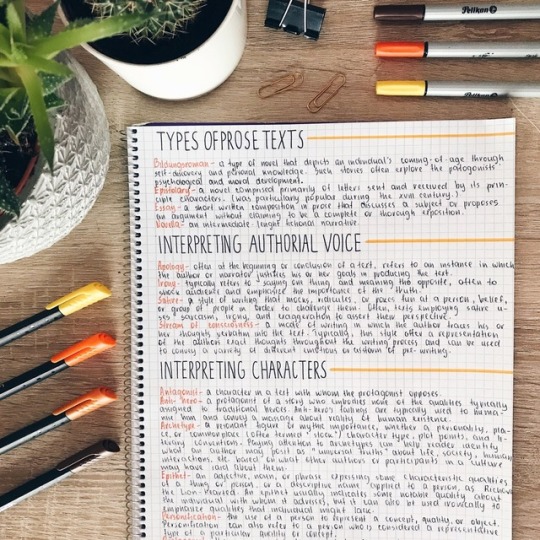 Pelikan
Pelikan
TYPES OF PROSE TEXTS
Bildungsroman - a type of novel that depicts an individual's coming-of-age through
self-discovery and personal knowledge. Such stories often explore the
psychological and moral development.
Epistolary - a novel comprised primarily of letters sent and received by its prin-
ciple characters. (was particularly popular during the XVIII century.)
Essay - a short written composition in prose that discusses a subject or proposes
an argument without claiming to be a complete or thorough exposition.
Novella - an intermediate-lenght fictional narrative.
INTERPRETING AUTHORIAL VOICE
Apology - often at the beginning or conclusion of a text, refers to an instance in which
the author or narrator justifies his or her goals in producing the text.
Irony - typically refers to saying one thing and meaning the opposite, often to
shock audiences and emphasize the importance of the truth.
Satire - a style of writing that mocks, ridicules, or pokes fun at a person, belief,
or group of people in order to challenge them. Often, texts employing satire u-
se sarcasm, irony, and exaggeration to assert their perspective.
Stream of consciousness - a mode of writing in which the author traces his or
her thoughts verbatim into the text. Typically, this style offers a representation
of the author's exact thoughts throughout the writing process and can be used
to convey a variety of different emotions or as a form of pre-writing.
INTERPRETING CHARACTERS
Antagonist - a character in a text with whom the protagonist opposes.
Anti-hero - a protagonist of a story who embodies none of the qualities typically
assigned to traditional heroes. Anti-hero's failings are typically used to huma-
nize him and convey a message about reality of human existence.
Archetype - a resonant figure or mythic importance, whether a personality, pla-
ce, or commonplace (often termed "stock") character type, plot points, and li-
terary conventions. Paying attention to archetypes can help readers identify
what an author may posit as "universal truths" about life, society, human
interactions, etc. based on what other authors or participants in a culture
may have said about them.
Epithet - an adjective, noun, or phrase expressing some characteristic quality
of a thing or person or a descriptive name applied to a person, as Richard
the Lion-Hearted. An epithet usually indicates some notable quality about
the individual with whom it addresses, but it can also be used ironically to
emphasize qualities that individual might lack.
Personification - the use of a person to represent a concept, quality, or object.
Personification can also refer to a person who is considered a representative
type of a particular quality or concept.